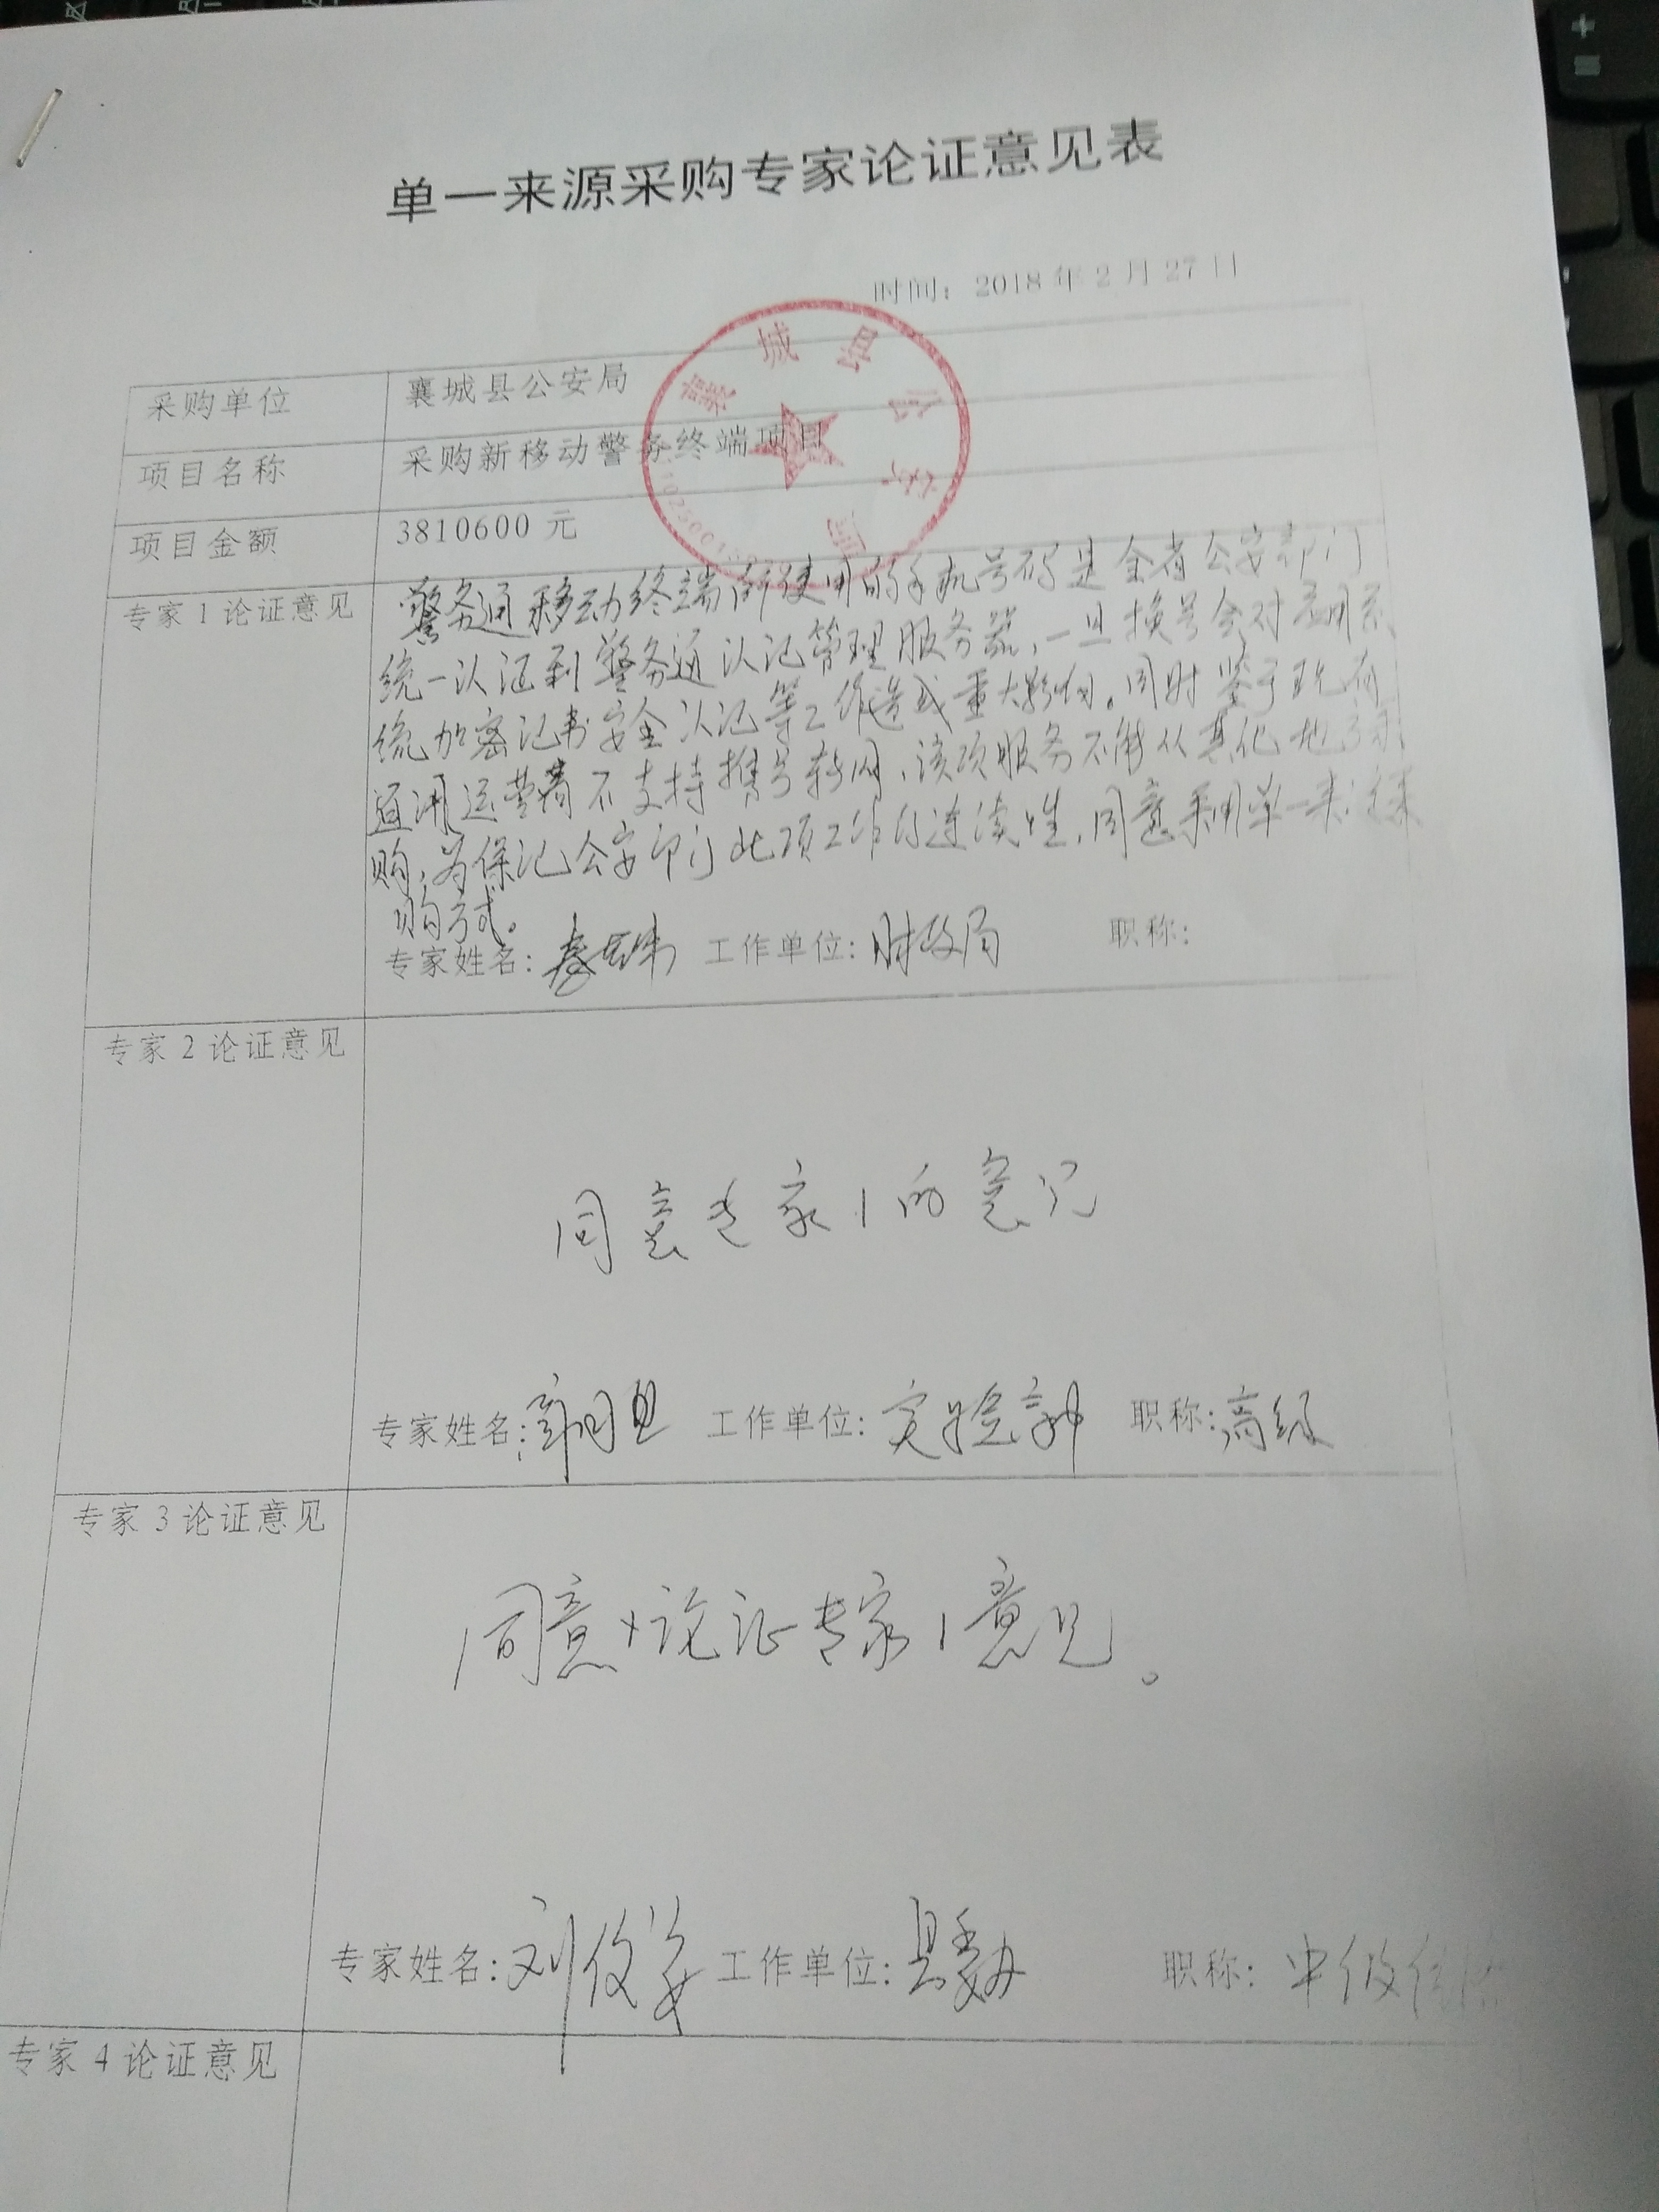 单一来源采购专家论证意见表
时间：2018年2月27日
采购单位 襄城县公安局
项目名称 采购新移动警务终端项目
项目金额 3810600 元
襄城县公安局
专家1论证意见
警务通移动终端所使用的手机号码是全省公安部门
统一认证到警务通认证管理服务器，一旦换号会对应用系
统加密证书安全认证等工作造成重大影响。同时鉴于现有
通讯运营商不支持携号转网，该项服务不能从其他地方采
购，为保证公安部门此项工作的连续性，同意采用单一来源采
购方式。
专家姓名： 工作单位：财政局 职称：
专家2论证意见
同意专家1的意见
专家姓名： 工作单位：实验高中 职称：高级
专家3论证意见
同意论证专家1意见。
专家姓名：刘俊姿 工作单位：县委办 职称：中级
专家4论证意见